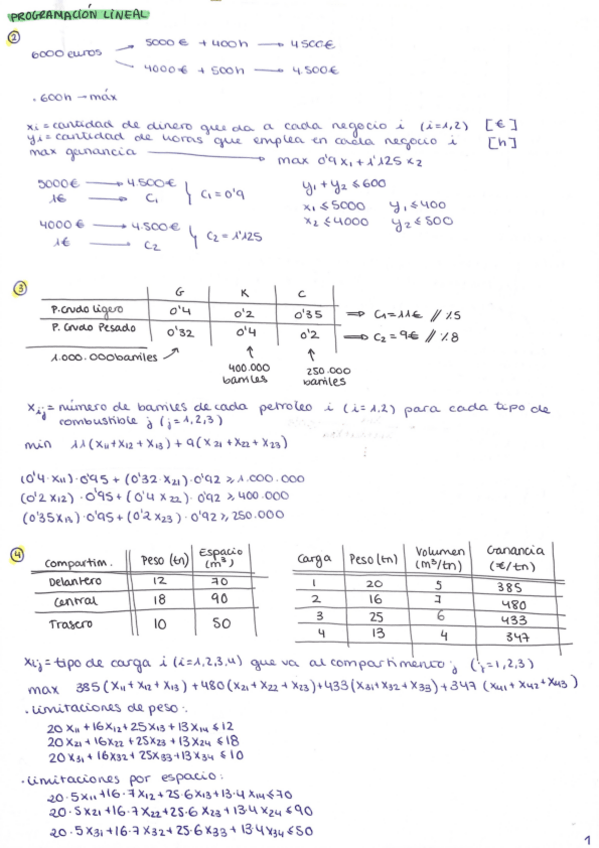 PROGRAMACIÓN LINEAL
2
6000 euros → 5000€ + 400h → 4500€
→ 4000€ + 500h → 4.500€
· 600h → máx
xi = cantidad de dinero que da a cada negocio i (i=1,2) [€]
yi = cantidad de horas que emplea en cada negocio i [h]
max ganancia → max 0'9 x1 + 1'125 x2
5000€ → 4.500€
1€ → C1
C1 = 0'9
4000€ → 4.500€
1€ → C2
C2 = 1'125
y1 + y2 ≤ 600
x1 ≤ 5000 y1 ≤ 400
x2 ≤ 4000 y2 ≤ 500
3
G K C
P. Crudo Ligero 0'4 0'2 0'35 ⇒ C1 = 11€ // %5
P. Crudo Pesado 0'32 0'4 0'2 ⇒ C2 = 9€ // %8
1.000.000 barriles
400.000 barriles
250.000 barriles
xij = número de barriles de cada petroleo i (i=1,2) para cada tipo de
combustible j (j=1,2,3)
min 11(x11+x12+x13) + 9(x21+x22+x23)
(0'4·x11)·0'95 + (0'32 x21)·0'92 ≥ 1.000.000
(0'2 x12)·0'95 + (0'4 x22)·0'92 ≥ 400.000
(0'35 x13)·0'95 + (0'2 x23)·0'92 ≥ 250.000
4
Compartim. Peso (tn) Espacio (m³)
Delantero 12 70
Central 18 90
Trasero 10 50
Carga Peso (tn) Volumen (m³/tn) Ganancia (€/tn)
1 20 5 385
2 16 7 480
3 25 6 433
4 13 4 347
xij = tipo de carga i (i=1,2,3,4) que va al compartimento j (j=1,2,3)
max 385(x11+x12+x13)+480(x21+x22+x23)+433(x31+x32+x33)+347(x41+x42+x43)
· Limitaciones de peso:
20x11+16x12+25x13+13x14 ≤ 12
20x21+16x22+25x23+13x24 ≤ 18
20x31+16x32+25x33+13x34 ≤ 10
· Limitaciones por espacio:
20·5x11+16·7x12+25·6x13+13·4x14 ≤ 70
20·5x21+16·7x22+25·6x23+13·4x24 ≤ 90
20·5x31+16·7x32+25·6x33+13·4x34 ≤ 50
1